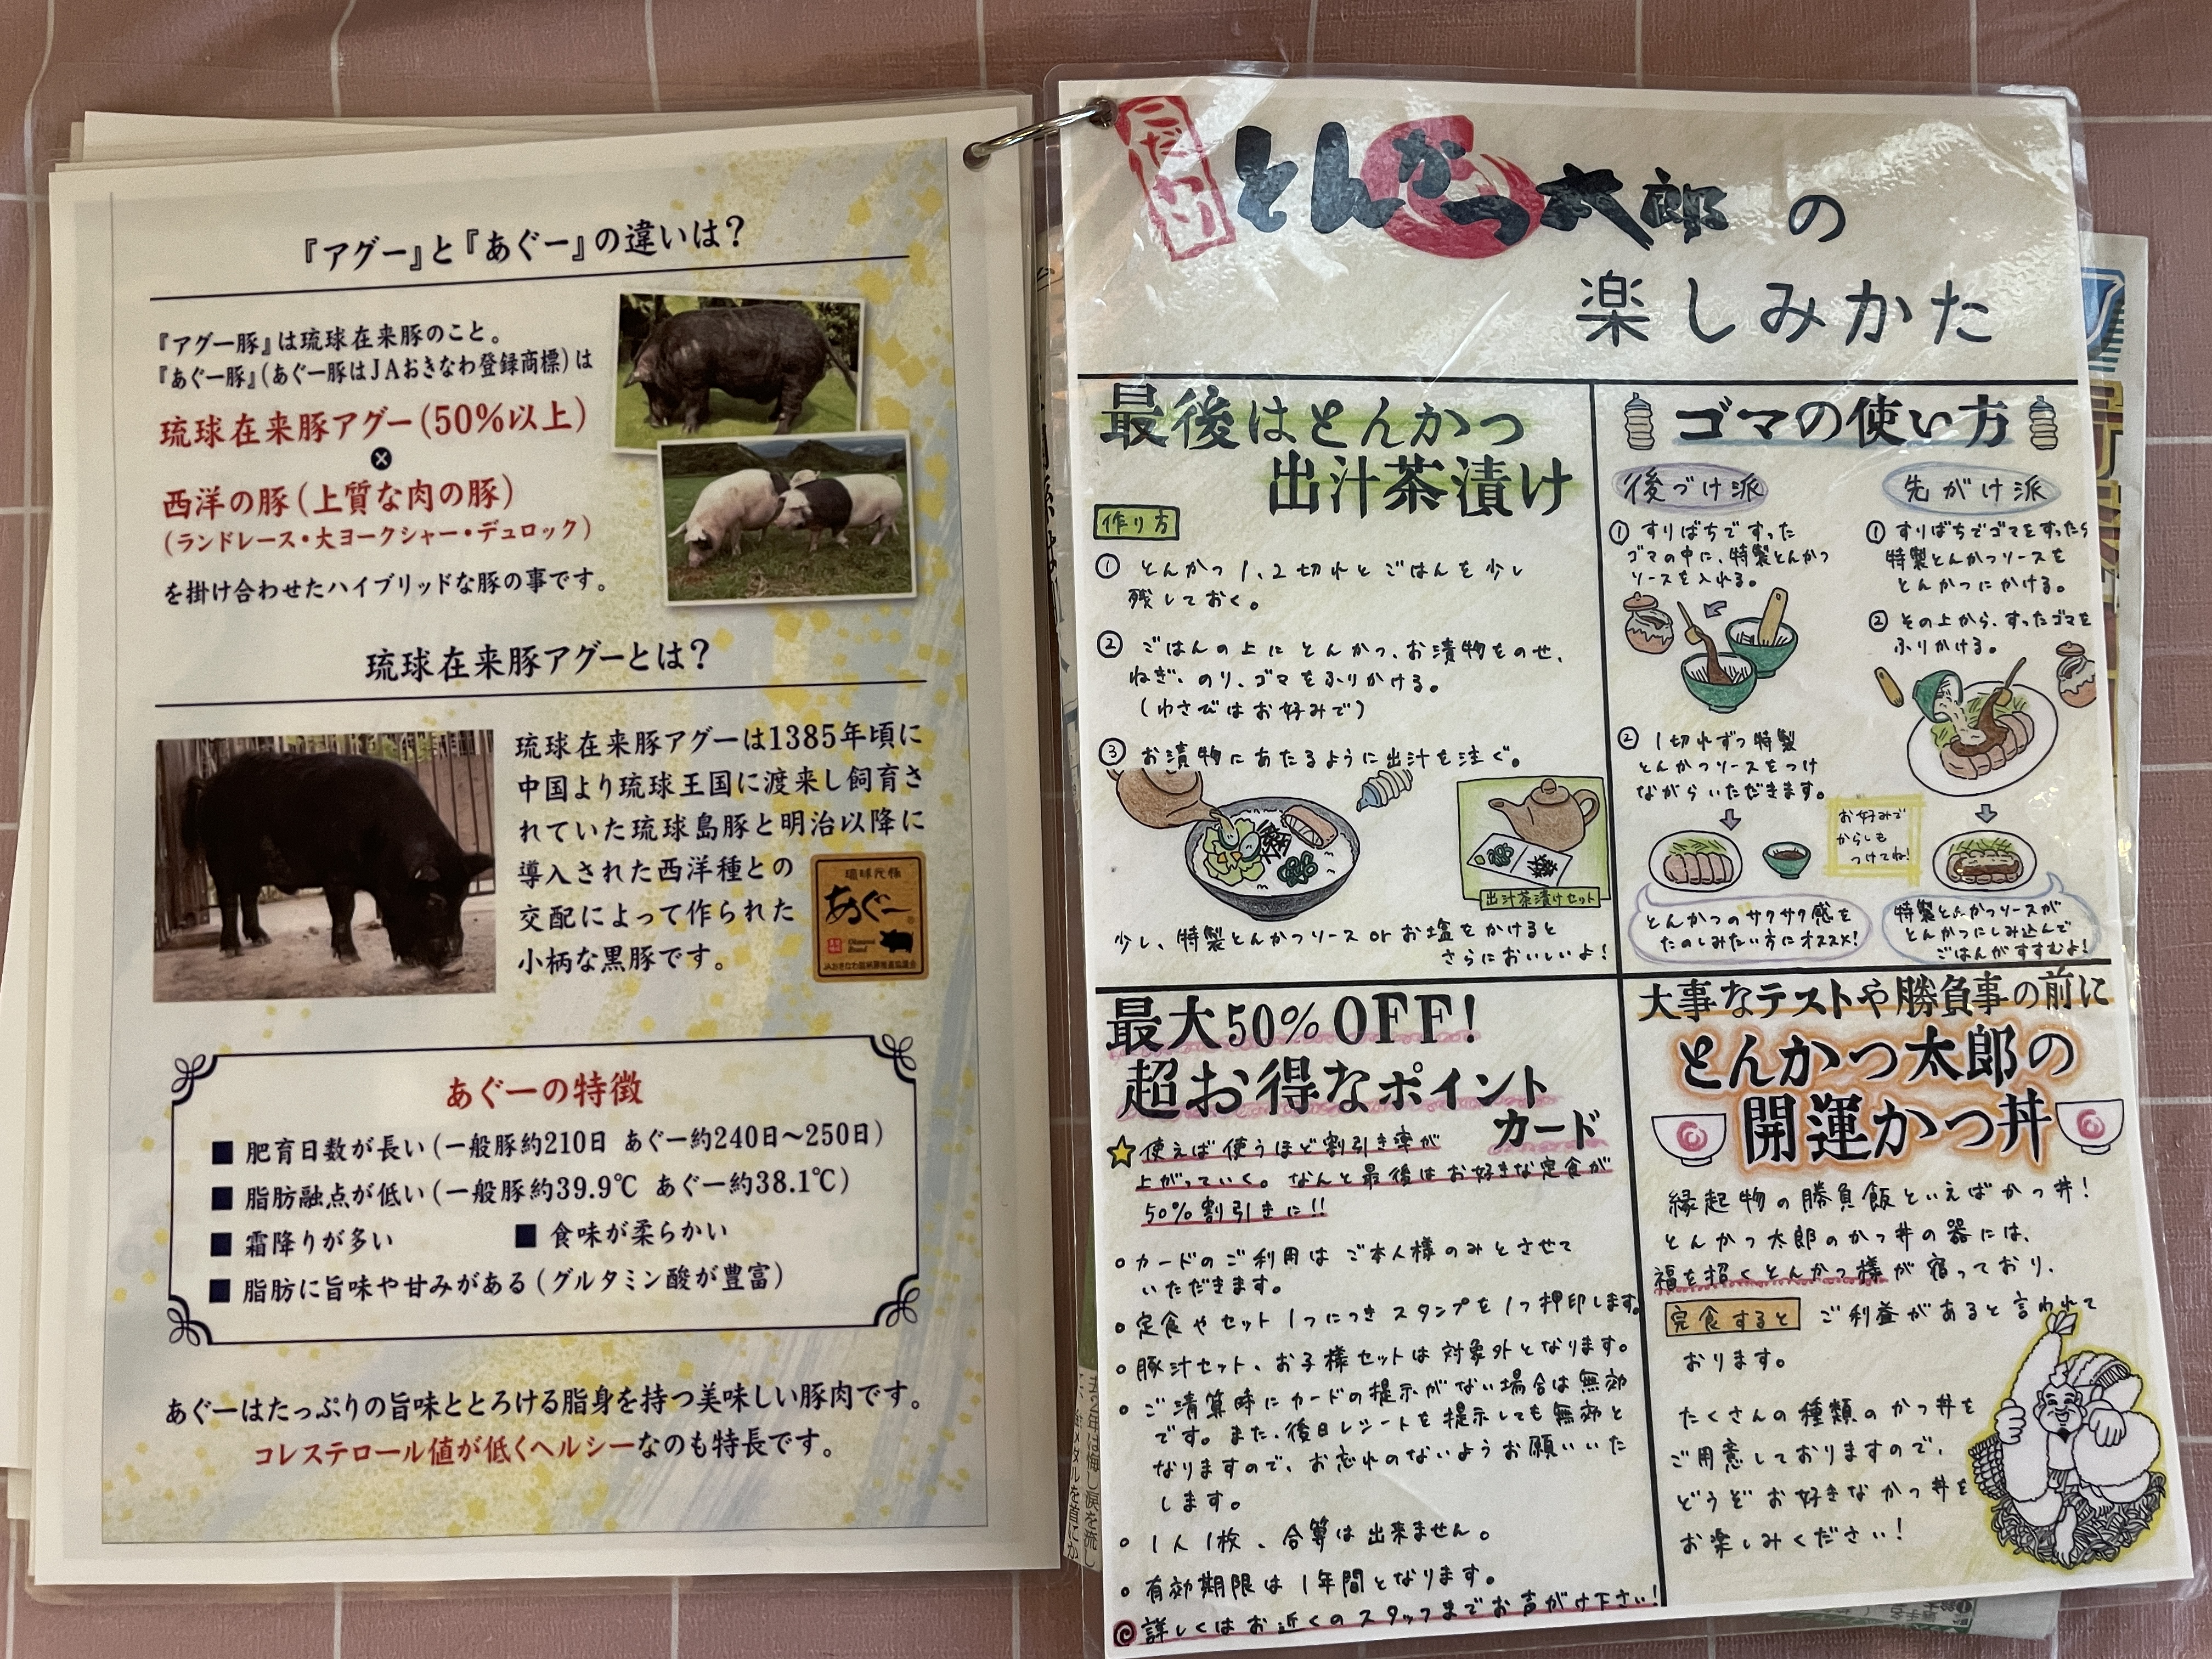 『アグー』と『あぐー』の違いは？
『アグー豚』は琉球在来豚のこと。
『あぐー豚』（あぐー豚はJAおきなわ登録商標）は
琉球在来豚アグー（50%以上）
×
西洋の豚（上質な肉の豚）
（ランドレース・大ヨークシャー・デュロック）
を掛け合わせたハイブリッドな豚の事です。
琉球在来豚アグーとは？
琉球在来豚アグーは1385年頃に
中国より琉球王国に渡来し飼育さ
れていた琉球島豚と明治以降に
導入された西洋種との
交配によって作られた
小柄な黒豚です。
あぐー
あぐーの特徴
■ 肥育日数が長い（一般豚約210日 あぐー約240日～250日）
■ 脂肪融点が低い（一般豚約39.9℃ あぐー約38.1℃）
■ 霜降りが多い ■ 食味が柔らかい
■ 脂肪に旨味や甘みがある（グルタミン酸が豊富）
あぐーはたっぷりの旨味ととろける脂身を持つ美味しい豚肉です。
コレステロール値が低くヘルシーなのも特長です。
こだわり
とんかつ太郎の
楽しみかた
最後はとんかつ
出汁茶漬け
作り方
① とんかつ1、2切れとごはんを少し
残しておく。
② ごはんの上にとんかつ、お漬物をのせ、
ねぎ、のり、ゴマをふりかける。
（わさびはお好みで）
③ お漬物にあたるように出汁を注ぐ。
出汁茶漬けセット
少し、特製とんかつソース or お塩をかけると
さらにおいしいよ！
ゴマの使い方
後づけ派
① すりばちですった
ゴマの中に、特製とんかつ
ソースを入れる。
② 1切れずつ特製
とんかつソースをつけ
ながらいただきます。
とんかつのサクサク感を
たのしみたい方にオススメ！
先がけ派
① すりばちでゴマをすったら
特製とんかつソースを
とんかつにかける。
② その上から、すったゴマを
ふりかける。
お好みで
からしも
つけてね！
特製とんかつソースが
とんかつにしみ込んで
ごはんがすすむよ！
最大50％OFF！
超お得なポイント
カード
☆使えば使うほど割引き率が
上がっていく。なんと最後はお好きな定食が
50％割引きに!!
○カードのご利用はご本人様のみとさせて
いただきます。
○定食やセット1つにつきスタンプを1つ押印します。
○豚汁セット、お子様セットは対象外となります。
○ご清算時にカードの提示がない場合は無効
です。また、後日レシートを提示しても無効と
なりますので、お忘れのないようお願いいた
します。
○1人1枚、合算は出来ません。
○有効期限は1年間となります。
◎詳しくはお近くのスタッフまでお声がけ下さい！
大事なテストや勝負事の前に
とんかつ太郎の
開運かつ丼
縁起物の勝負飯といえばかつ丼！
とんかつ太郎のかつ丼の器には、
福を招くとんかつ様が宿っており、
完食すると ご利益があると言われて
おります。
たくさんの種類のかつ丼を
ご用意しておりますので、
どうぞお好きなかつ丼を
お楽しみください！